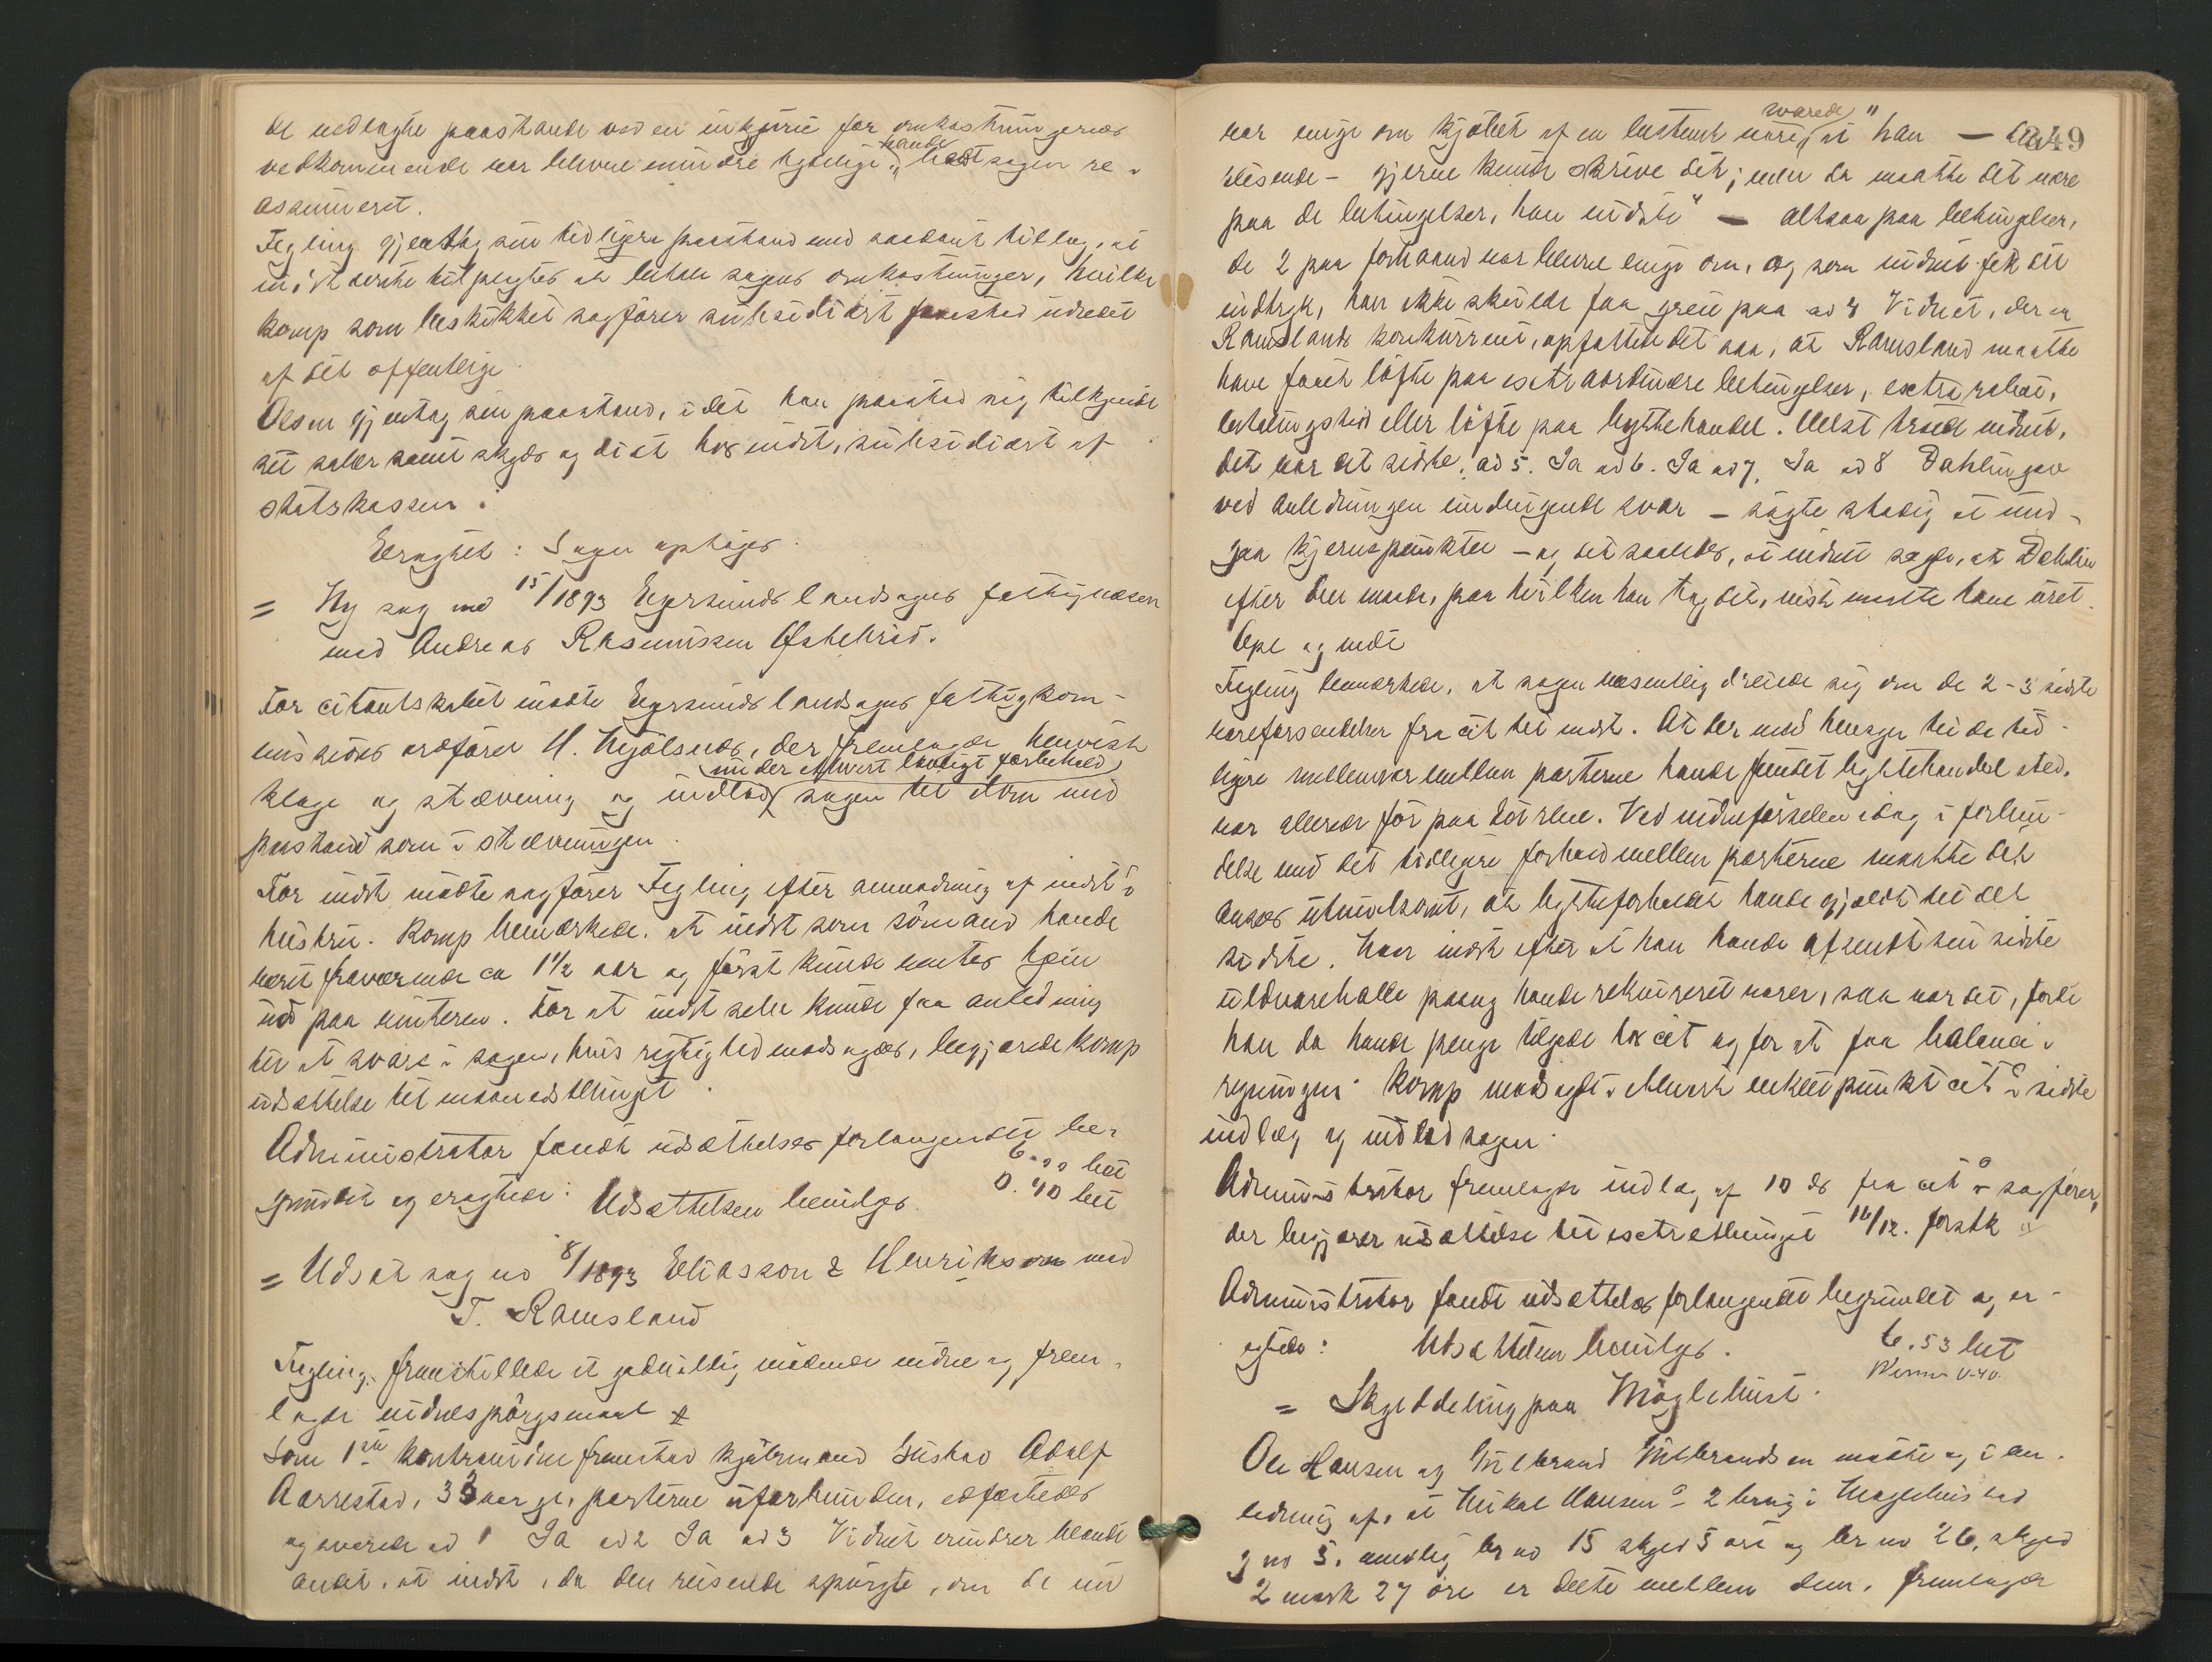 de nedlagte paastande ved en inkjurie for omkostningernes
vedkommende var blevne mindre tydelige, havde ladet sagen re-
assumeret.
Fegling gjentog sin tidligere paastand med saadant tillæg, at
indst. tilpligtes at betale sagens omkostninger, hvilke
komp som beskikket sagfører subsidiært paastod udredet
af det offentlige.
Olsen gjentog sin paastand, idet han paastod sig tilkjendt
sit salær samt skyds og diæt hos indst, subsidiært af
statskassen.
Eragtet: Sagen optages.
= Ny sag no 15/1893 Egersunds landsogns fattigvæsen
mod Andreas Rasmussen Østebrød.
For citantskabet mødte Egersunds landsogns fattigkom-
missions ordfører H. , der fremlagde henvist
klage og stævning og indlod under ethvert lovligt forbehold sagen til dom med
paastand som i stævningen.
For indst. mødte sagfører Fegling efter anmodning af indst's
hustru. Komp bemærkede, at indst som sømand havde
været fraværende ca 1½ aar og først kunde ventes hjem
ud paa vinteren. For at indst selv kunde faa anledning
til at svare i sagen, hvis rigtighed modsagdes, begjærede komp
udsættelse til maanedsthinget.
Administrator fandt udsættelses forlangendet be-
grundet og eragtede: Udsættelsen bevilges.
6.00 bet
0.40 bet
= Udsat sag no 8/1893 Eliasson & Henrikson mod
T. Ramsland
Fegling fremstillede et godvillig mødende vidne og frem-
lagde vidnespørgsmaal
Som 1ste kontravidne fremstod kjøbmand Gustav Adolf
Aarrestad, 33 aar gl, parterne uforbunden, edfæstedes
og svarede ad 1 Ja ad 2 Ja ad 3 Vidnet erindrer blandt
andet, at indst, da den reisende spurgte, om de nu
349
var enige om kjøbet af en bestemt vare, svarede "at han — den
reisende - gjerne kunde skrive det; men da maatte det være
paa de betingelser, han vidste" — altsaa paa betingelser,
de 2 paa forhaand var blevne enige om, og som vidnet fik det
indtryk, han ikke skulde faa greie paa ad 4 Vidnet, der er
Ramslands konkurrent, opfattede det saa, at Ramsland maatte
have faaet løfte paa extraordinære betingelser, extra rabat,
betalingstid eller løfte paa byttehandel. Helst troede vidnet,
det var det sidste. ad 5. Ja ad 6. Ja ad 7. Ja ad 8 Dahlin gav
ved anledningen undvigende svar - søgte stadig at und-
gaa kjernepunktet - og det saaledes, at vidnet sagde, at Dahlin
efter den maade, paa hvilken han tog det, vist maatte have uret.
Opl og vedt
Fegling bemærkede, at sagen væsentlig dreiede sig om de 2-3 sidste
vareforsendelser fra cit til indst. At der med hensyn til de tid-
ligere mellemvær mellem parterne havde fundet byttehandel sted,
var allerede før paa det rene. Ved vidneførselen idag i forbin-
delse med det tidligere forhold mellem parterne maatte det
ansees utvivlsomt, at bytteforholdet havde gjældt til det
sidste. Naar indst efter at han havde afsendt sin sidste
uldvareballe paany havde rekvireret varer, saa var det, fordi
han da havde penge tilgode hos cit og for at faa balance i
regningen. Komp modsagde ethvert enkelt punkt i cit's sidste
indlæg og indlod sagen.
Administrator fremlagde indlæg af 10 ds fra cit's sagfører,
der begjærer udsættelse til extrathinget 16/12. forstk
Administrator fandt udsættelses forlangendet begrundet og er-
agtede: Udsættelsen bevilges.
6.53 bet
0.40.
= Skylddeling paa Møglehust.
Ole Hansen og Gulbrand Gulbrandsen mødte og i an-
ledning af, at Mikal Hansens 2 brug i Møglehus
g no 5, nemlig br no 15 skyld 5 øre og br no 26, skyld
2 mark 27 øre er delte mellem dem, fremlagde